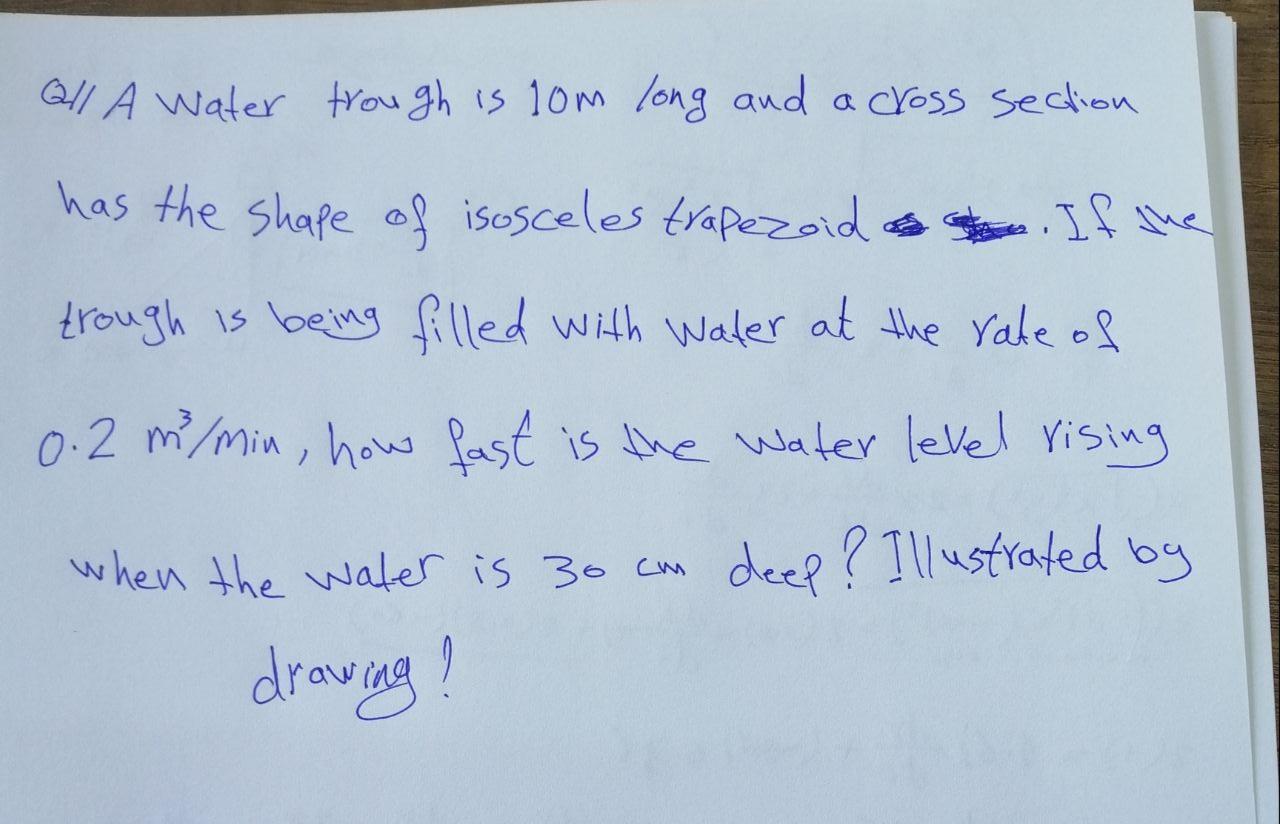 Q1// A Water trough is 10m long and a cross section
has the shape of isosceles trapezoid . If the
trough is being filled with Water at the rate of
0.2 m³/min, how fast is the water level rising
when the water is 30 cm deep? Illustrated by
drawing!